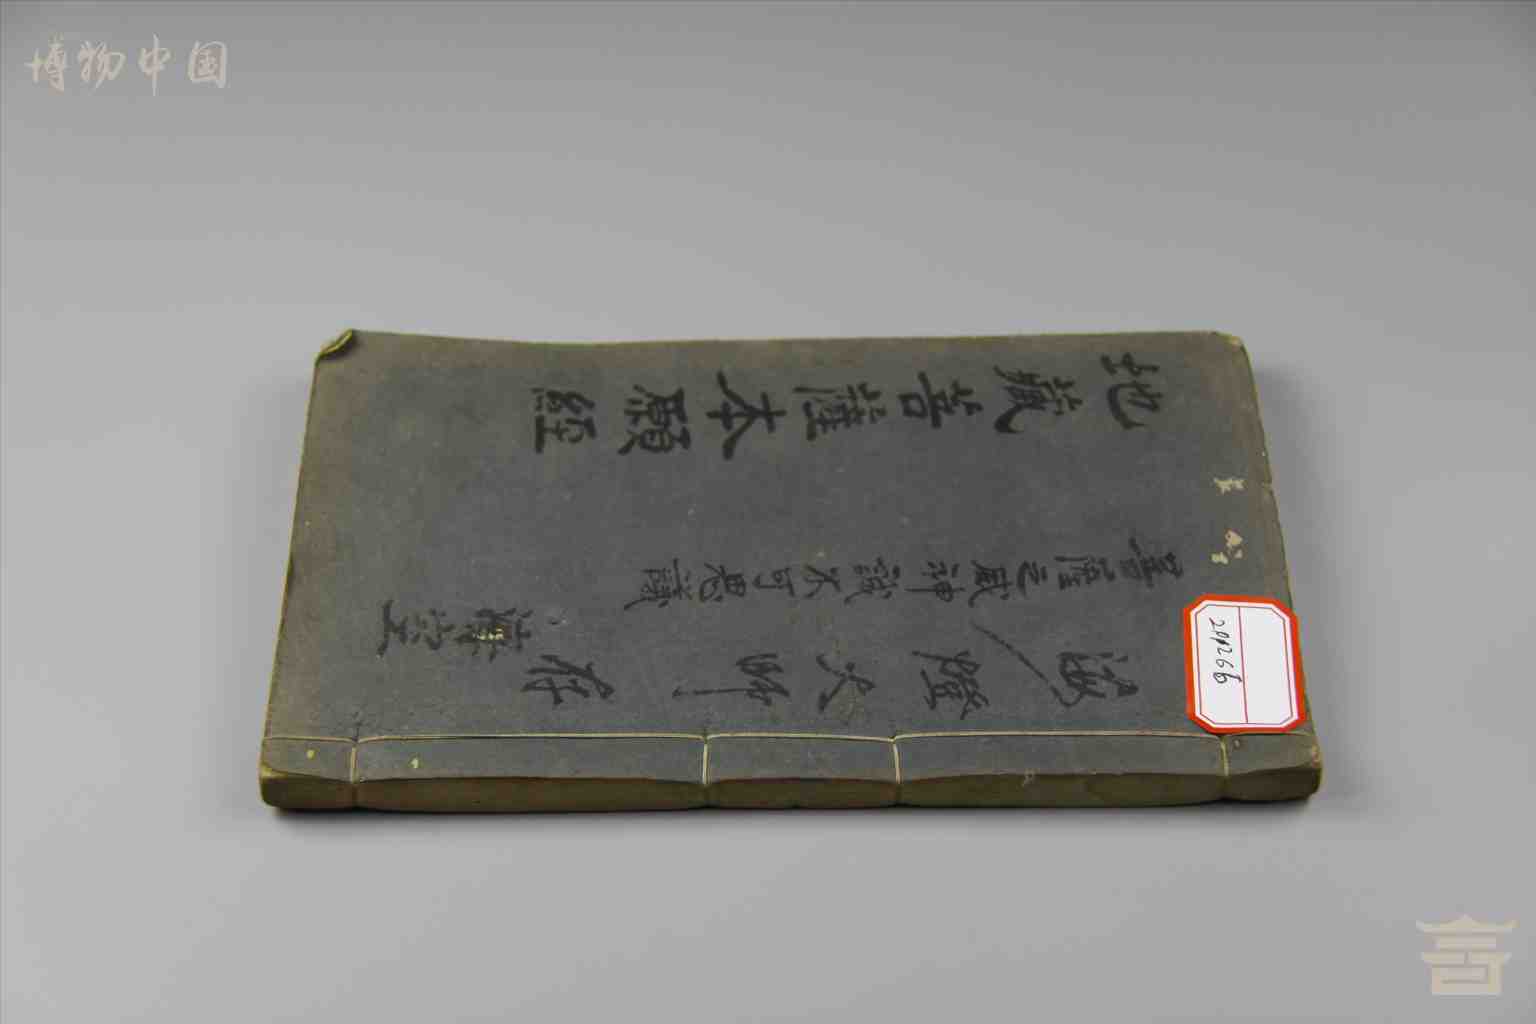 博物中国
地藏菩薩本願經
菩薩之威神誠不可思議
海燈大師存